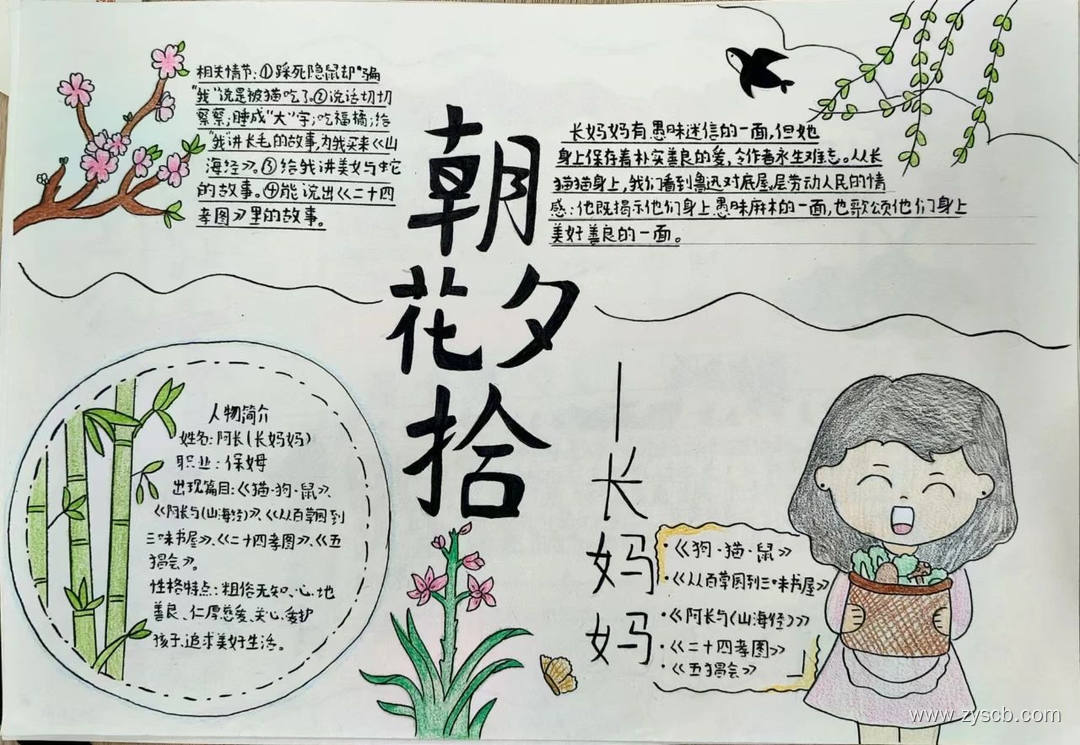 相关情节:①踩死隐鼠却骗
"我"说是被猫吃了。②说话切切
察察;睡成"大"字;吃福橘;给
"我"讲长毛的故事,为我买来《山
海经》。③给我讲美女与蛇
的故事。④能说出《二十四
孝图》里的故事。
朝
花夕
拾
长妈妈有愚昧迷信的一面,但她
身上保存着朴实善良的爱,令作者永生难忘。从长
猫猫身上,我们看到鲁迅对底屋层劳动人民的情
感:他既揭示他们身上愚昧麻木的一面,也歌颂他们身上
美好善良的一面。
人物简介
姓名:阿长(长妈妈)
职业:保姆
出现篇目:《猫·狗·鼠》、
《阿长与(山海经)》、《从百草园到
三味书屋》、《二十四孝图》、《五
猖会》。
性格特点:粗俗无知、心地
善良、仁厚慈爱、关心、爱护
孩子、追求美好生活。
—长妈妈
·《狗·猫·鼠》
·《从百草园到三味书屋》
·《阿长与(山海经)》
·《二十四孝图》
·《五猖会》
www.zyscb.com